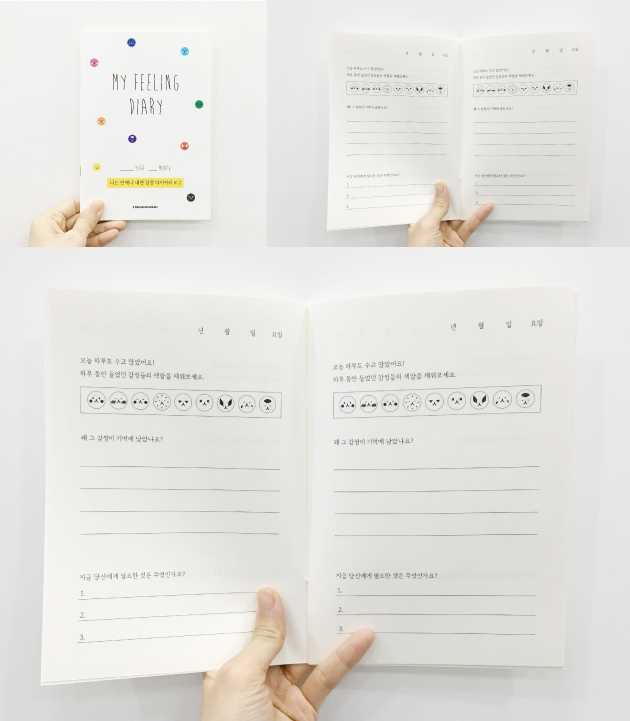 MY FEELING
DIARY
YEAR MONTH
년 월 일 요일
오늘 하루도 수고 많았어요!
하루 동안 들었던 감정들의 색깔을 채워보세요.
왜 그 감정이 기억에 남았나요?
지금 당신에게 필요한 것은 무엇인가요?
1.
2.
3.
년 월 일 요일
오늘 하루도 수고 많았어요!
하루 동안 들었던 감정들의 색깔을 채워보세요.
왜 그 감정이 기억에 남았나요?
지금 당신에게 필요한 것은 무엇인가요?
1.
2.
3.
년 월 일 요일
오늘 하루도 수고 많았어요!
하루 동안 들었던 감정들의 색깔을 채워보세요.
왜 그 감정이 기억에 남았나요?
지금 당신에게 필요한 것은 무엇인가요?
1.
2.
3.
년 월 일 요일
오늘 하루도 수고 많았어요!
하루 동안 들었던 감정들의 색깔을 채워보세요.
왜 그 감정이 기억에 남았나요?
지금 당신에게 필요한 것은 무엇인가요?
1.
2.
3.